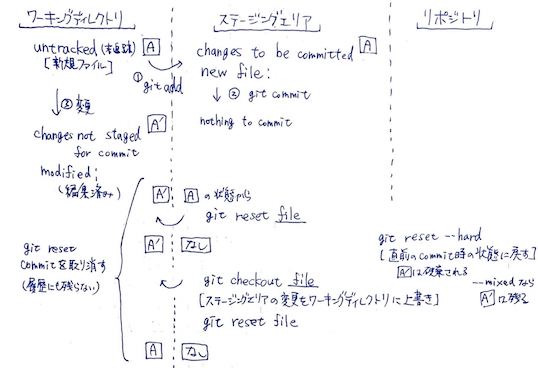 ワーキングディレクトリ
ステージングエリア
リポジトリ
untracked (未追跡) A
[新規ファイル]
① git add
changes to be committed A
new file:
↓ ② git commit
nothing to commit
↓ ③ 変更
changes not staged A'
for commit
modified:
(編集済み)
A' A の状態から
git reset file
A' なし
git reset
commitを取り消す
(履歴にも残らない)
git checkout file
[ステージングエリアの変更もワーキングディレクトリに上書き]
git reset file
A なし
git reset --hard
[直前のcommit時の状態に戻す]
A' は破棄される
--mixedなら
A' は残る